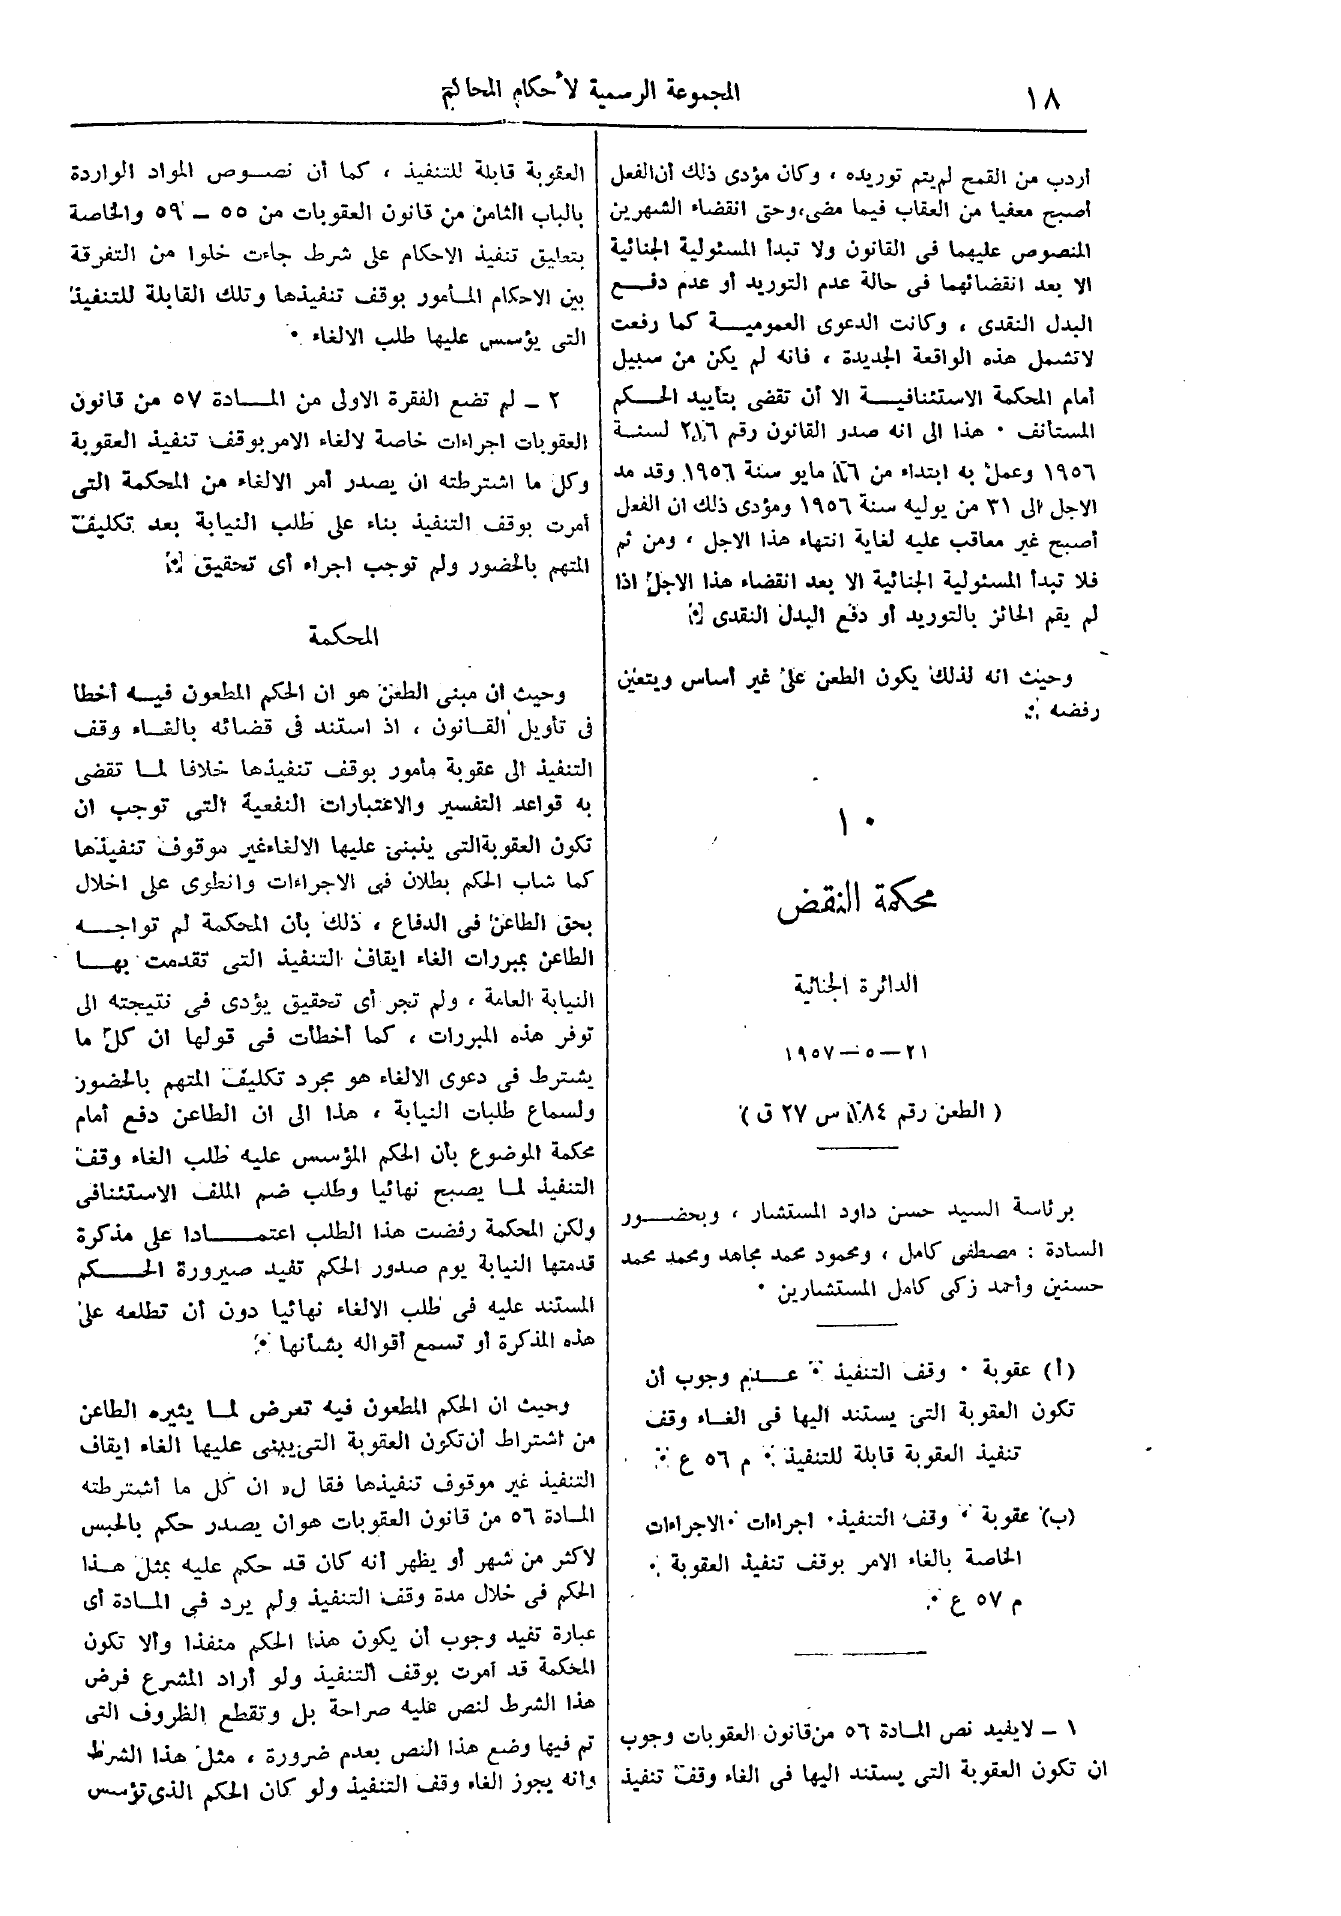 ١٨
المجموعة الرسمية لأحكام المحاكم
أردب من القمح لم يتم توريده ، وكان مؤدى ذلك أن الفعل
أصبح معفيا من العقاب فيما مضى، وحتى انقضاء الشهرين
المنصوص عليهما فى القانون ولا تبدأ المسئولية الجنائية
الا بعد انقضائهما فى حالة عدم التوريد أو عدم دفع
البدل النقدى ، وكانت الدعوى العمومية كما رفعت
لاتشمل هذه الواقعة الجديدة ، فانه لم يكن من سبيل
أمام المحكمة الاستئنافية الا أن تقضى بتأييد الحكم
المستأنف . هذا الى انه صدر القانون رقم ٢١٦ لسنة
١٩٥٦ وعمل به ابتداء من ٢٦ مايو سنة ١٩٥٦ وقد مد
الاجل الى ٣١ من يوليه سنة ١٩٥٦ ومؤدى ذلك ان الفعل
أصبح غير معاقب عليه لغاية انتهاء هذا الاجل ، ومن ثم
فلا تبدأ المسئولية الجنائية الا بعد انقضاء هذا الاجل اذا
لم يقم الحائز بالتوريد أو دفع البدل النقدى .
وحيث انه لذلك يكون الطعن على غير أساس ويتعين
رفضه .
١٠
محكمة النقض
الدائرة الجنائية
٢١ – ٥ – ١٩٥٧
( الطعن رقم ٤٨٤ س ٢٧ ق )
برئاسة السيد حسن داود المستشار ، وبحضور
السادة : مصطفى كامل ، ومحمود محمد مجاهد ومحمد محمد
حسنين وأحمد زكى كامل المستشارين .
(أ) عقوبة . وقف التنفيذ . عدم وجوب أن
تكون العقوبة التى يستند اليها فى الغاء وقف
تنفيذ العقوبة قابلة للتنفيذ . م ٥٦ ع .
(ب) عقوبة . وقف التنفيذ . اجراءات . الاجراءات
الخاصة بالغاء الامر بوقف تنفيذ العقوبة .
م ٥٧ ع .
١ – لايفيد نص المادة ٥٦ من قانون العقوبات وجوب
ان تكون العقوبة التى يستند اليها فى الغاء وقف تنفيذ
العقوبة قابلة للتنفيذ ، كما أن نصوص المواد الواردة
بالباب الثامن من قانون العقوبات من ٥٥ – ٥٩ والخاصة
بتعليق تنفيذ الاحكام على شرط جاءت خلوا من التفرقة
بين الاحكام المأمور بوقف تنفيذها وتلك القابلة للتنفيذ
التى يؤسس عليها طلب الالغاء .
٢ – لم تضع الفقرة الاولى من المادة ٥٧ من قانون
العقوبات اجراءات خاصة لالغاء الامر بوقف تنفيذ العقوبة
وكل ما اشترطته ان يصدر أمر الالغاء من المحكمة التى
أمرت بوقف التنفيذ بناء على طلب النيابة بعد تكليف
المتهم بالحضور ولم توجب اجراء أى تحقيق .
المحكمة
وحيث ان مبنى الطعن هو ان الحكم المطعون فيه أخطا
فى تأويل القانون ، اذ استند فى قضائه بالغاء وقف
التنفيذ الى عقوبة مأمور بوقف تنفيذها خلافا لما تقضى
به قواعد التفسير والاعتبارات النفعية التى توجب ان
تكون العقوبة التى ينبنى عليها الالغاء غير موقوف تنفيذها
كما شاب الحكم بطلان فى الاجراءات وانطوى على اخلال
بحق الطاعن فى الدفاع ، ذلك بأن المحكمة لم تواجه
الطاعن بمبررات الغاء ايقاف التنفيذ التى تقدمت بها
النيابة العامة ، ولم تجر أى تحقيق يؤدى فى نتيجته الى
توفر هذه المبررات ، كما أخطأت فى قولها ان كل ما
يشترط فى دعوى الالغاء هو مجرد تكليف المتهم بالحضور
ولسماع طلبات النيابة ، هذا الى ان الطاعن دفع أمام
محكمة الموضوع بأن الحكم المؤسس عليه طلب الغاء وقف
التنفيذ لما يصبح نهائيا وطلب ضم الملف الاستئنافى
ولكن المحكمة رفضت هذا الطلب اعتمادا على مذكرة
قدمتها النيابة يوم صدور الحكم تفيد صيرورة الحكم
المستند عليه فى طلب الالغاء نهائيا دون أن تطلعه على
هذه المذكرة أو تسمع أقواله بشأنها .
وحيث ان الحكم المطعون فيه تعرض لما يثيره الطاعن
من اشتراط أن تكون العقوبة التى يبنى عليها الغاء ايقاف
التنفيذ غير موقوف تنفيذها فقال « ان كل ما أشترطته
المادة ٥٦ من قانون العقوبات هو ان يصدر حكم بالحبس
لاكثر من شهر أو يظهر أنه كان قد حكم عليه بمثل هذا
الحكم فى خلال مدة وقف التنفيذ ولم يرد فى المادة أى
عبارة تفيد وجوب أن يكون هذا الحكم منفذا وألا تكون
المحكمة قد أمرت بوقف التنفيذ ولو أراد المشرع فرض
هذا الشرط لنص عليه صراحة بل وتقطع الظروف التى
تم فيها وضع هذا النص بعدم ضرورة ، مثل هذا الشرط
وانه يجوز الغاء وقف التنفيذ ولو كان الحكم الذى تؤسس